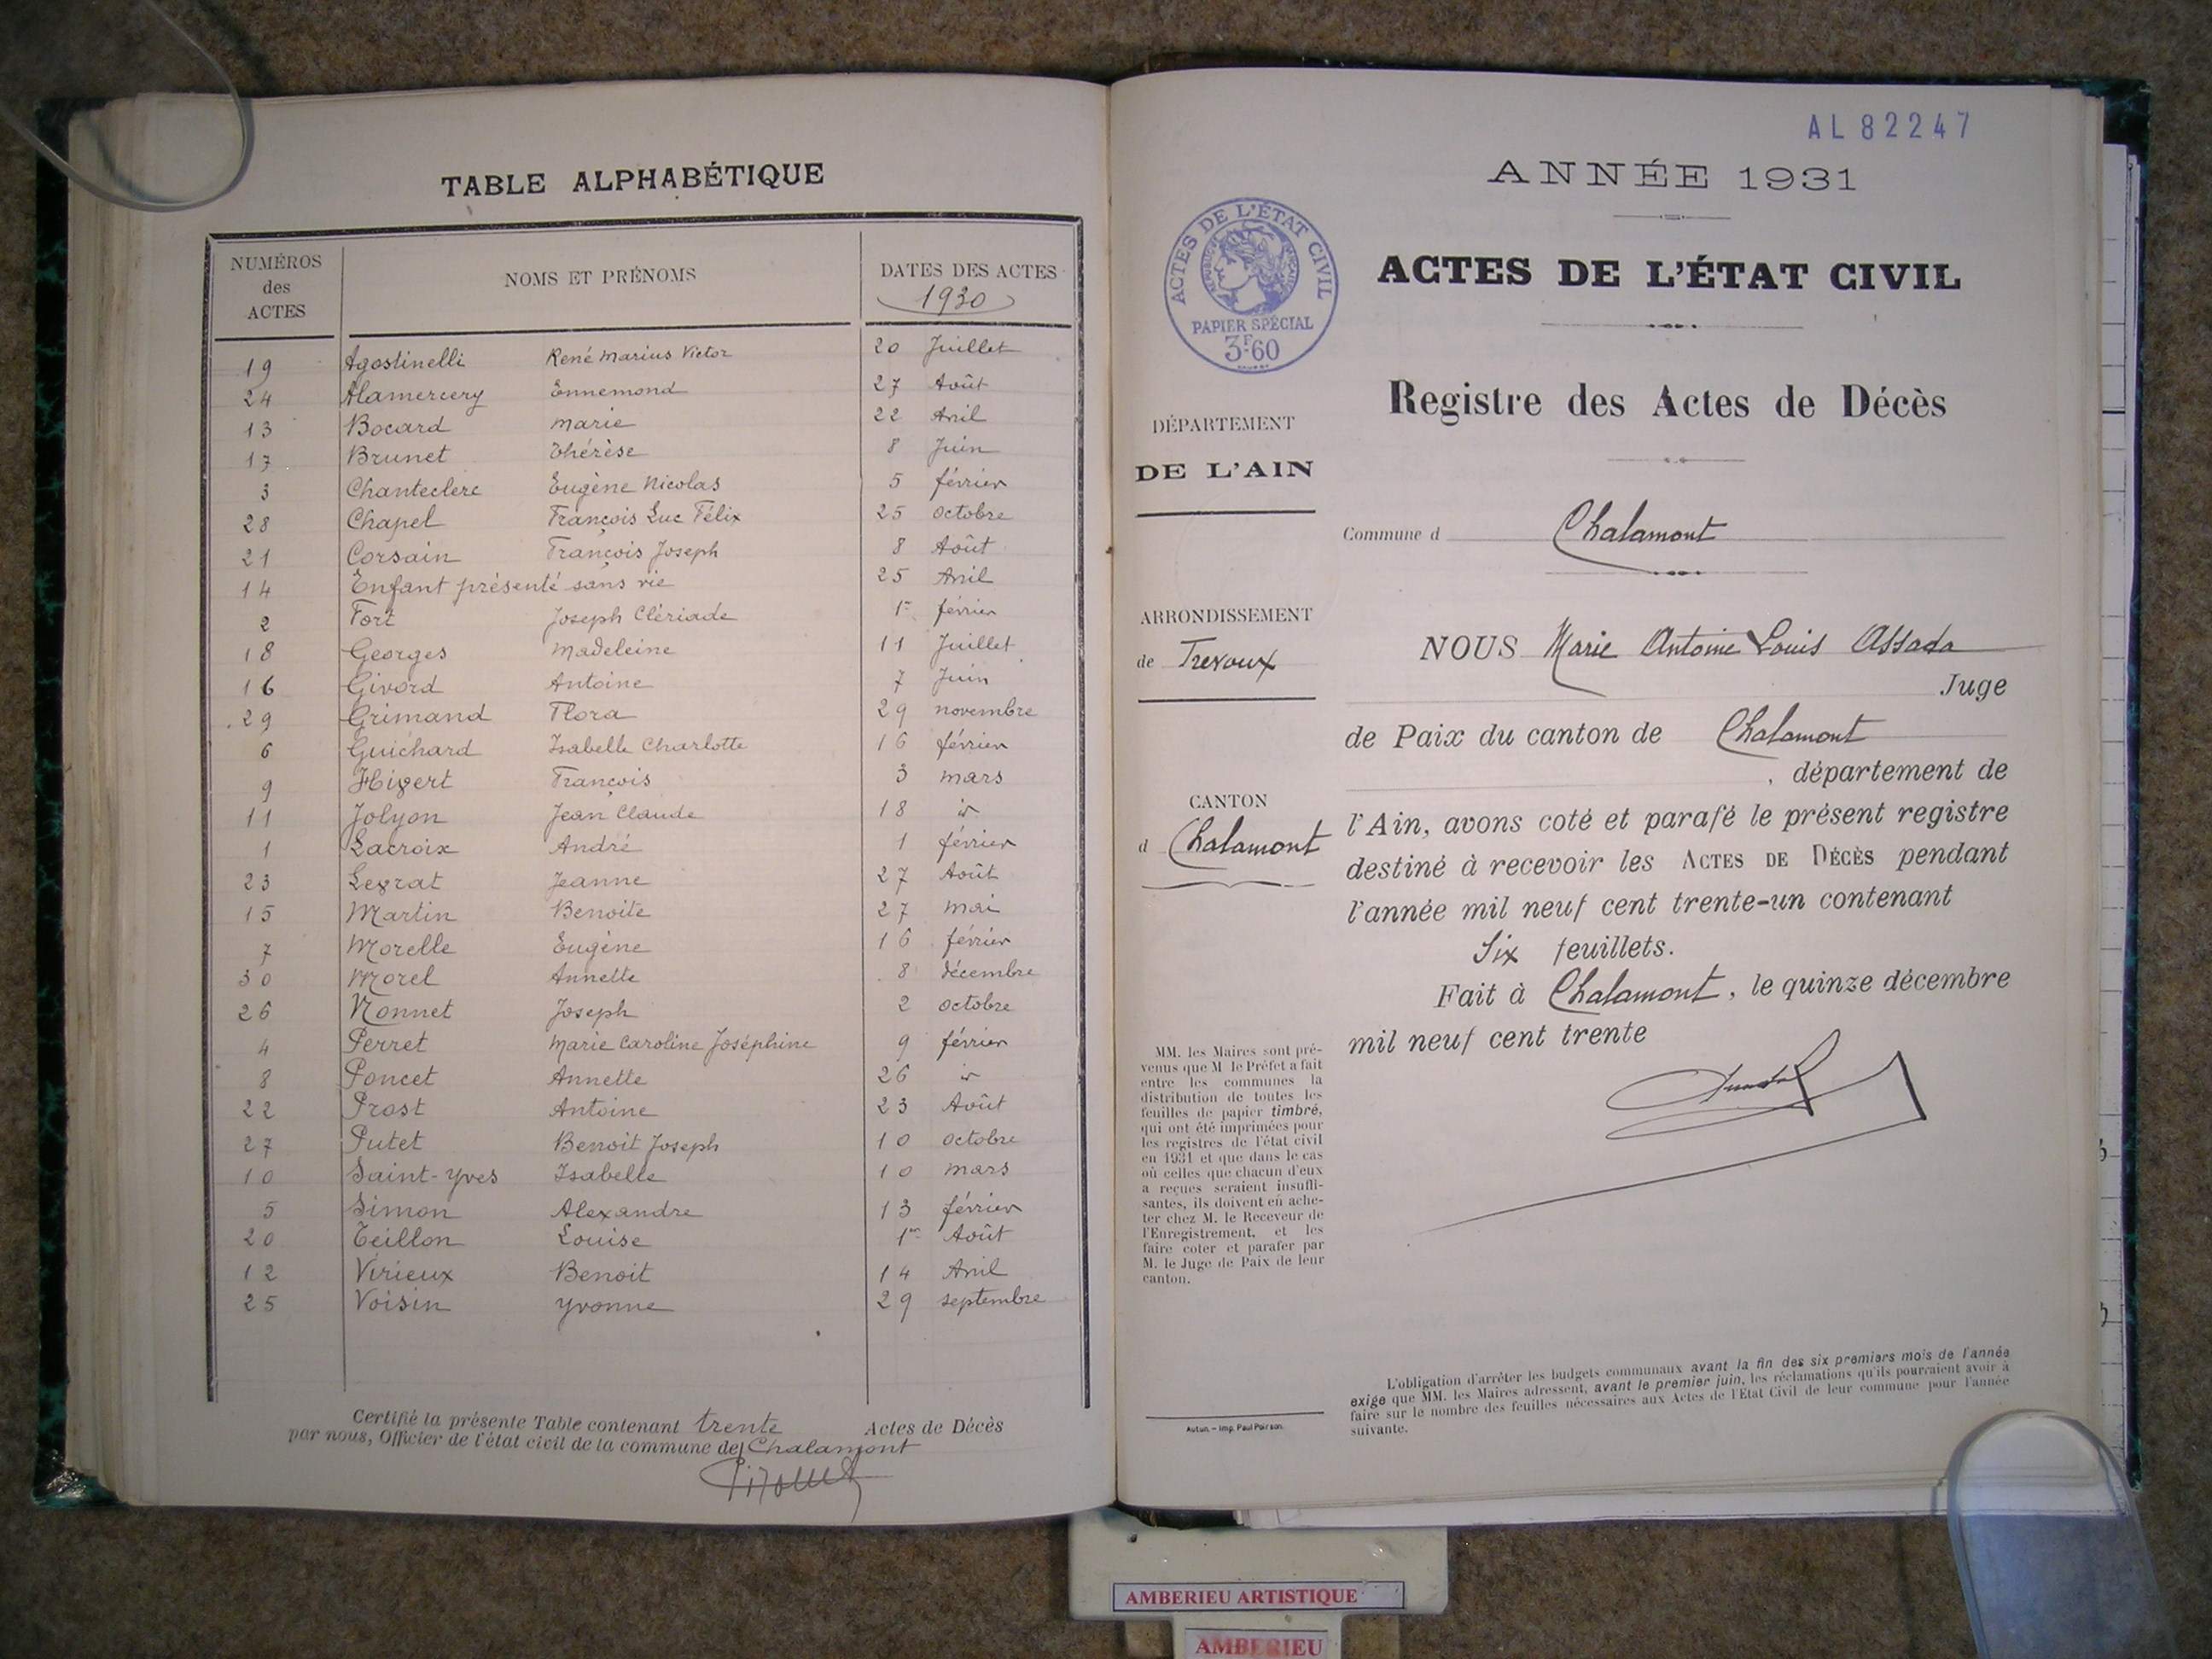 TABLE ALPHABÉTIQUE
NUMÉROS des ACTES NOMS ET PRÉNOMS DATES DES ACTES 1930
19 Agostinelli René Marius Victor 20 Juillet
24 Alamercery Ennemond 27 Août
13 Bocard Marie 22 Avril
17 Brunet Thérèse 8 Juin
3 Chanteclerc Eugène Nicolas 5 février
28 Chapel François Luc Félix 25 octobre
21 Corsain François Joseph 8 Août
14 Enfant présenté sans vie 25 Avril
2 Fort Joseph Clériade 1er février
18 Georges Madeleine 11 Juillet
16 Givord Antoine 7 Juin
29 Grimand Flora 29 novembre
6 Guichard Isabelle Charlotte 16 février
9 Higert François 3 mars
11 Jolyon Jean Claude 18 id
1 Lacroix André 1 février
23 Legrat Jeanne 27 Août
15 Martin Benoite 27 mai
7 Morelle Eugène 16 février
30 Morel Annette 8 décembre
26 Nonnet Joseph 2 octobre
4 Perret Marie Caroline Joséphine 9 février
8 Poncet Annette 26 id
22 Prost Antoine 23 Août
27 Putet Benoit Joseph 10 octobre
10 Saint-Yves Isabelle 10 mars
5 Simon Alexandre 13 février
20 Teillon Louise 1er Août
12 Virieux Benoit 14 Avril
25 Voisin Yvonne 29 septembre
Certifié la présente Table contenant trente Actes de Décès
par nous, Officier de l'état civil de la commune de Chalamont
AL 82247
ANNÉE 1931
ACTES DE L'ÉTAT CIVIL
RÉPUBLIQUE FRANÇAISE
PAPIER SPÉCIAL
3F60
ACTES DE L'ÉTAT CIVIL
Registre des Actes de Décès
DÉPARTEMENT
DE L'AIN
Commune d Chalamont
ARRONDISSEMENT
de Trevoux
CANTON
d Chalamont
NOUS Marie Antoine Louis Assada
Juge
de Paix du canton de Chalamont
, département de
l'Ain, avons coté et parafé le présent registre
destiné à recevoir les ACTES DE DÉCÈS pendant
l'année mil neuf cent trente-un contenant
Six feuillets.
Fait à Chalamont, le quinze décembre
mil neuf cent trente
MM. les Maires sont pré-
venus que M le Préfet a fait
entre les communes la
distribution de toutes les
feuilles de papier timbré,
qui ont été imprimées pour
les registres de l'état civil
en 1931 et que dans le cas
où celles que chacun d'eux
a reçues seraient insuffi-
santes, ils doivent en ache-
ter chez M. le Receveur de
l'Enregistrement, et les
faire coter et parafer par
M. le Juge de Paix de leur
canton.
Autun. - Imp. Paul Poirson.
L'obligation d'arrêter les budgets communaux avant la fin des six premiers mois de l'année
exige que MM. les Maires adressent, avant le premier juin, les réclamations qu'ils pourraient avoir à
faire sur le nombre des feuilles nécessaires aux Actes de l'Etat Civil de leur commune pour l'année
suivante.
AMBERIEU ARTISTIQUE
AMBERIEU